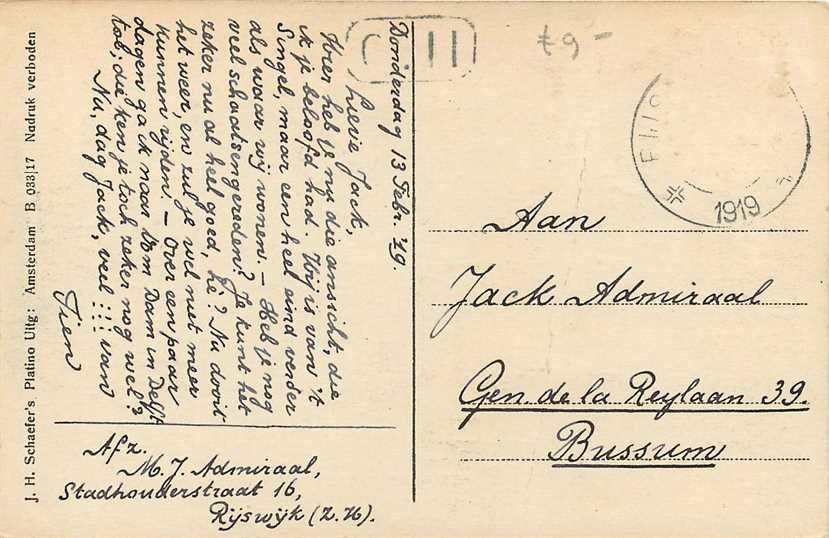 Donderdag 13 Febr. '19.
Lieve Jack,
Hier heb je nu die ansicht, die
ik je beloofd had. Wij is van 't
Singel, maar een heel eind verder
als waar wij wonen. – Heb je nog
veel schaatsengereden? Je kunt het
zeker nu al heel goed, hè? Nu dooit
het weer, en zul je wel niet meer
kunnen rijden. – Over een paar
dagen ga ik naar Dam in Delft
tob; die ken je toch zeker nog wel?
Nu, dag Jack, veel !!! van
Tien
Afz.
M. J. Admiraal,
Stadhouderstraat 16,
Rijswijk (Z.H).
J. H. Schaefer's Platino Uitg: Amsterdam B 033|17 Nadruk verboden
1919
Aan
Jack Admiraal
Gen. de la Reylaan 39.
Bussum